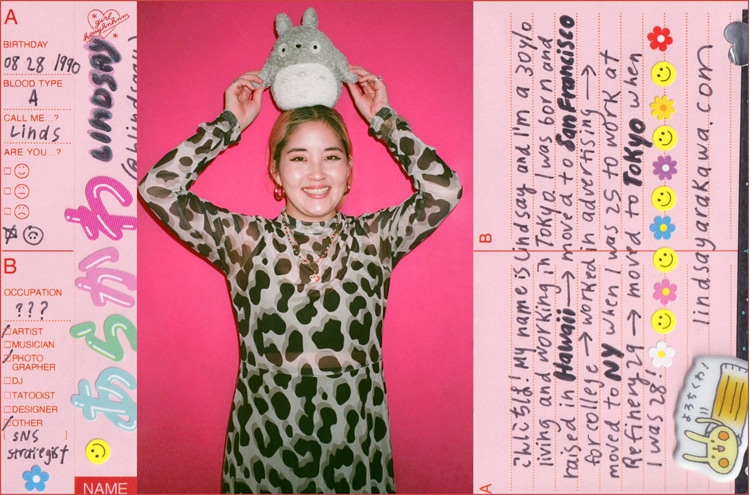 A
BIRTHDAY
08 28 1990
BLOOD TYPE
A
CALL ME...?
Linds
ARE YOU...?
B
OCCUPATION
???
ARTIST
MUSICIAN
PHOTO
GRAPHER
DJ
TATOOIST
DESIGNER
OTHER
(SNS
strategist
NAME
LINDSAY
あらかわ
こんにちは! My name is Lindsay and I'm a 30 y/o
living and working in Tokyo. I was born and
raised in Hawaii → moved to San Francisco
for college → worked in advertising →
moved to NY when I was 25 to work at
Refinery 29 → moved to Tokyo when
I was 28!
lindsayarakawa.com
B
A